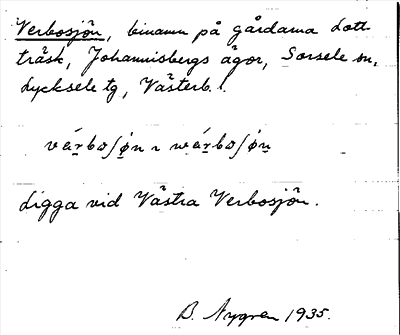 Verbosjön, binamn på gårdarna Lott-
träsk, Johannisbergs ägor, Sorsele sn,
Lycksele tg, Västerb. l.
vár̲boʃø̲n̲ ~ wár̲boʃǿn̲
Ligga vid Västra Verbosjön.
B. Nygren 1935.